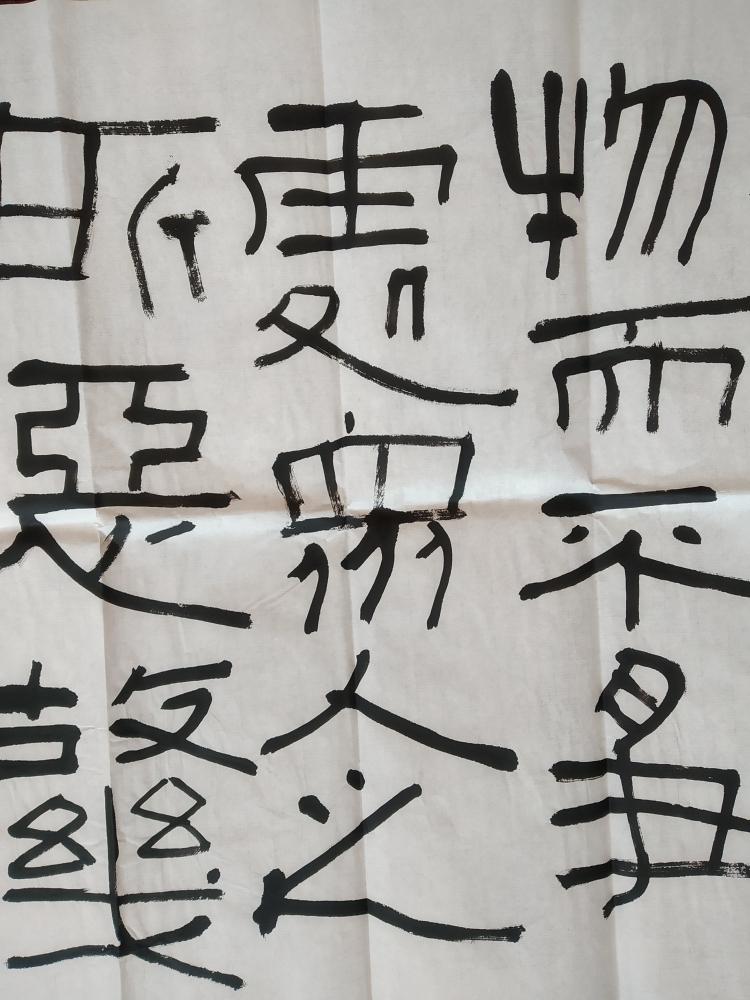 物而不爭
處衆人之
所惡故幾